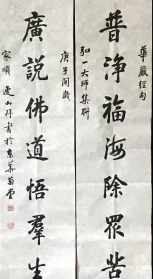 華嚴經句
普淨福海除眾苦
弘一大師集聯
庚子閏歲
廣說佛道悟羣生